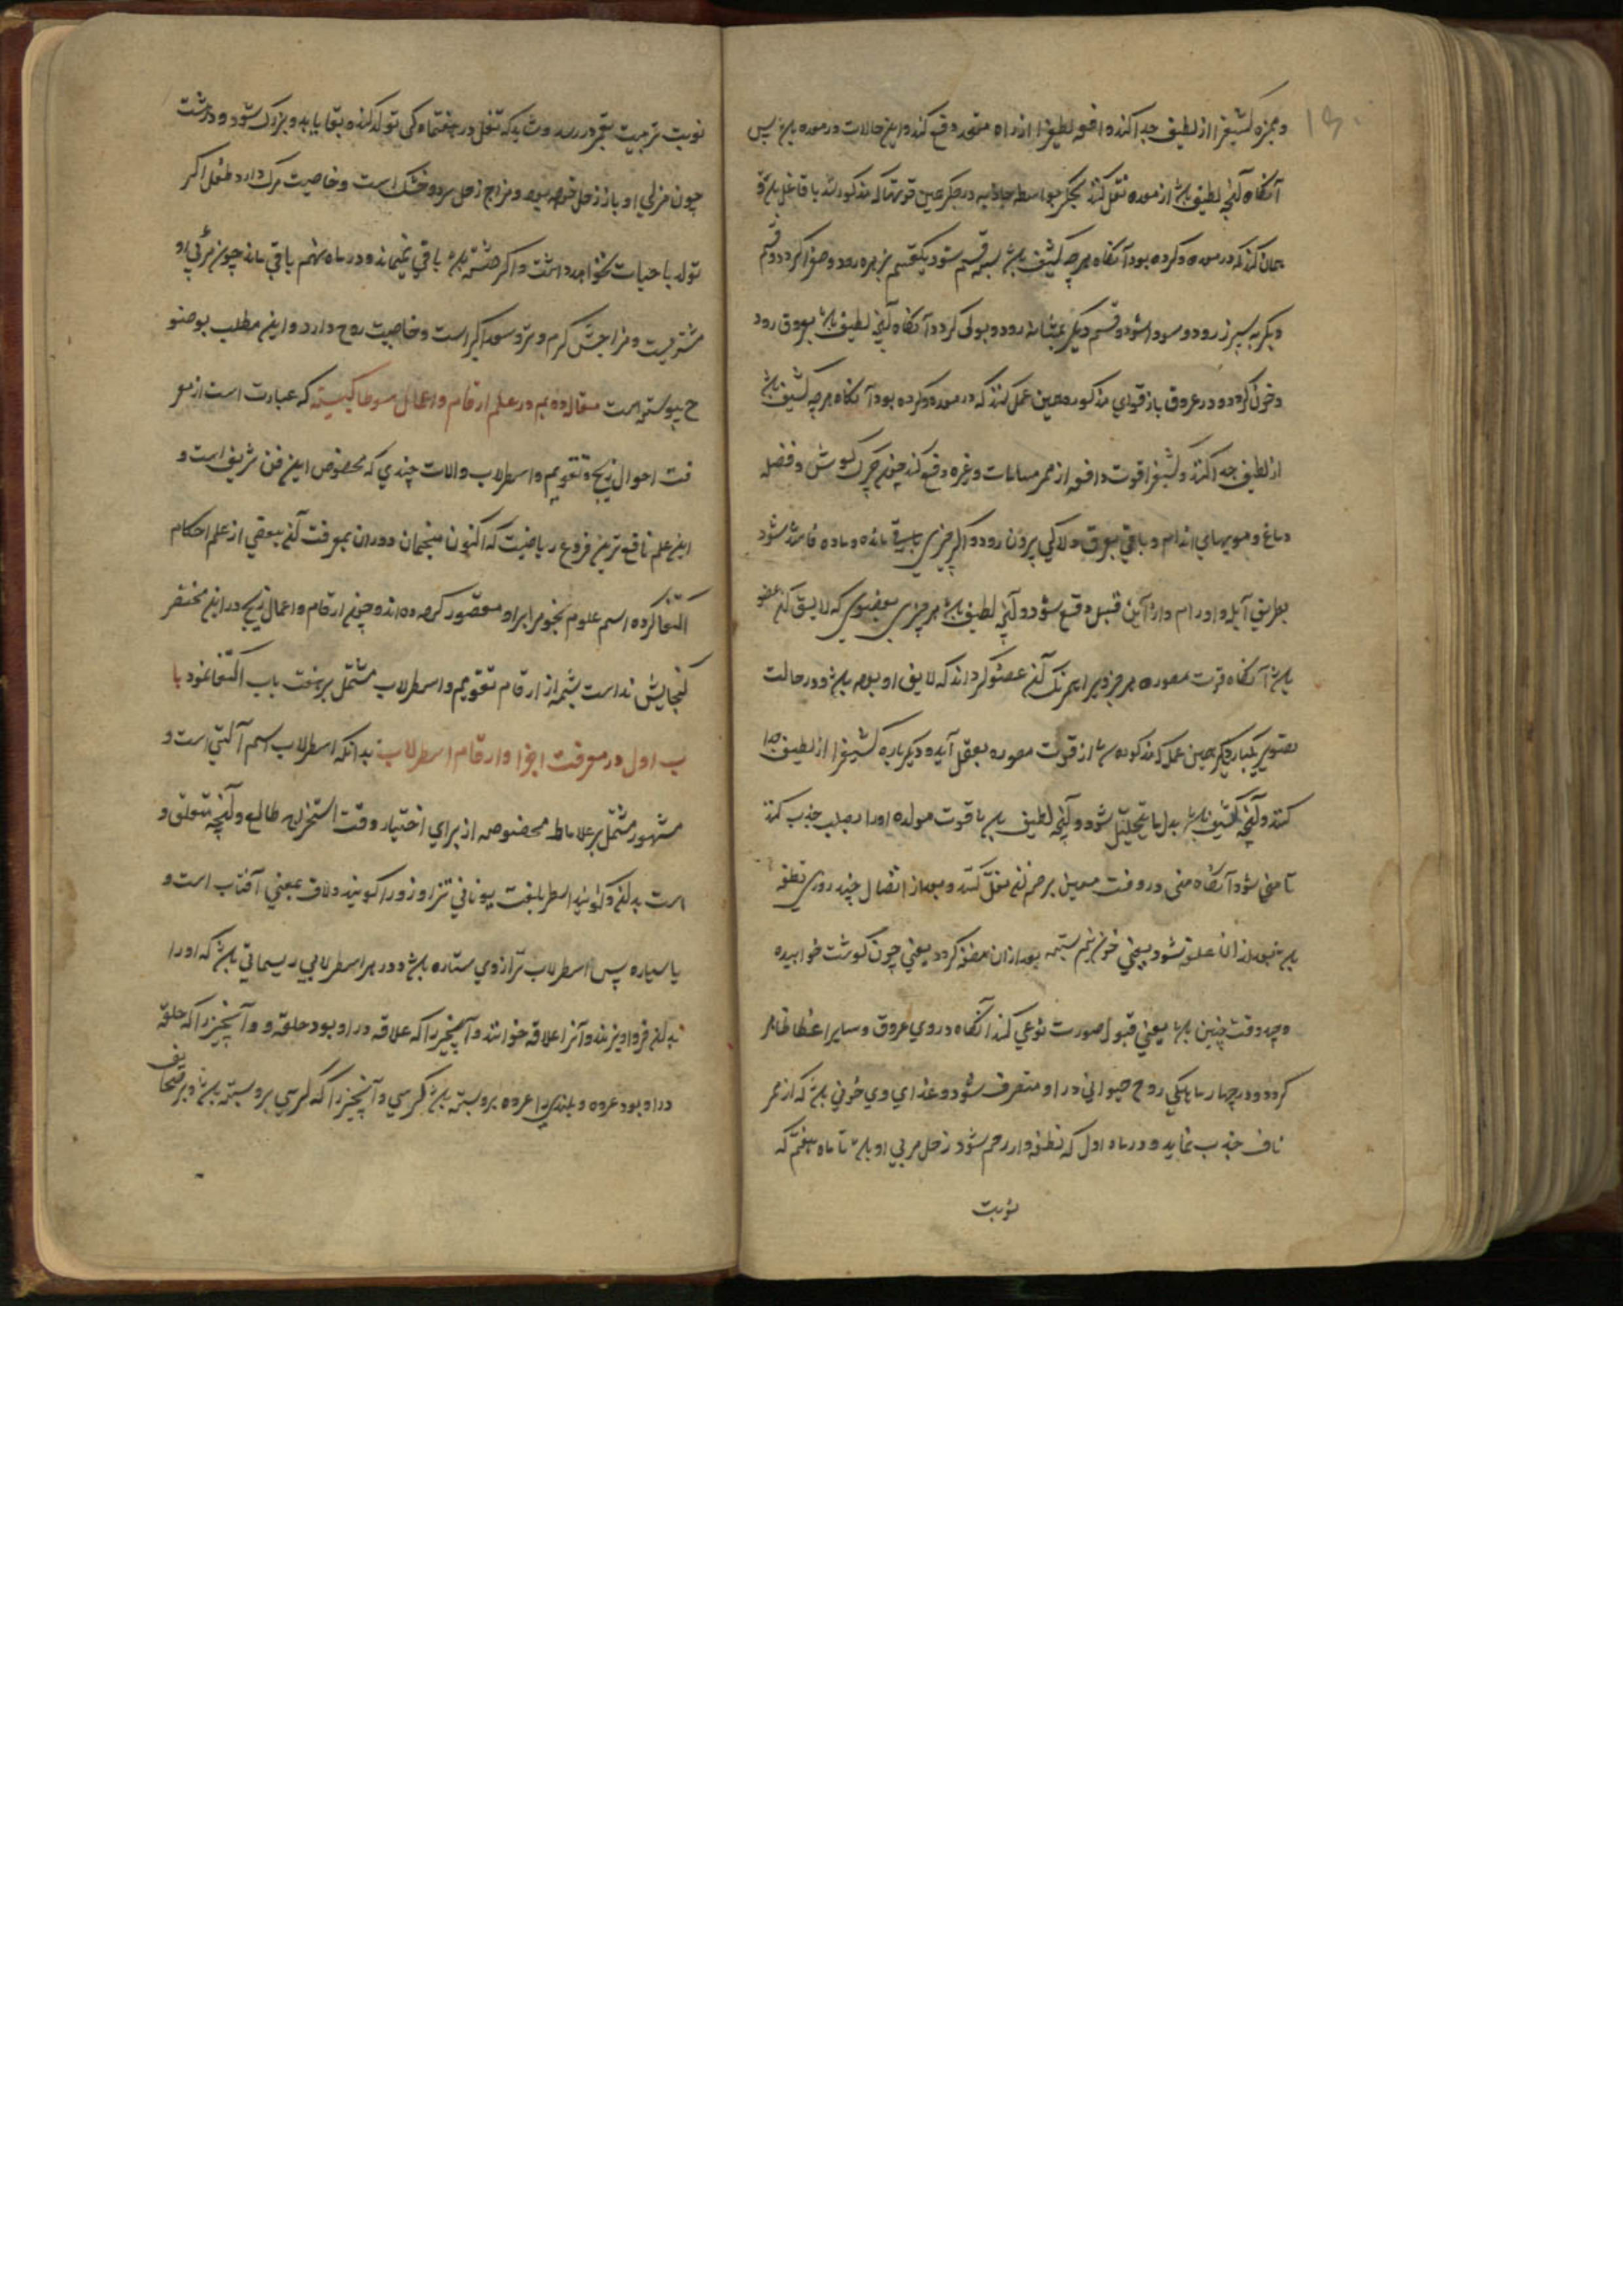 ۱۹۰
و همزه کثیفرا از لطیف جدا کند و دافعه لطیفرا از راه مقعد دفع کند و این حالات در معده باشد پس
آنگاه آنچه لطیف باشد از معده نقل کند بجگر بواسطه جاذبه در جگر همین قوتها که مذکور شد باقاعل باشد و
همان کند که در معده کرده بود آنگاه هرچه کثیف باشد بسه قسم شود یکقسم بزهره رود و صفرا کردد و قسم
دیکر به سپرز رود و سودا شود و قسم دیکر بمثانه رود و بولی کردد آنگاه آنچه لطیف باشد بعروق رود
و خون کردد و در عروق باز قوای مذکوره همین عمل کنند که در معده کرده بود آنگاه هرچه کثیف باشد
از لطیف جدا کند و کثیفرا قوت دافعه از ممر مسامات و غیره دفع کند چون چرک کوش و فضله
دماغ و مویهای اندام و باقی بعرق و لاکی بیرون رود و اکر چیزی باقی مانده و ماده فاسد شود
بطریق آبله و اورام وازاین قبیل دفع شود و آنچه لطیف باشد هر چیزی بعضوی که لایق آن عضو
باشد آنگاه قوت مصوره هر چیزیرا همرنک آن عضو کرداند که لایق او بود باشد و در حالت
تصویر یکبار دیکر همین عمل که مذکور شد از قوت مصوره بفعل آید و دیکر باره کثیفرا از لطیف جدا
کند و آنچه کثیف باشد بدل ما یتحلل شود و آنچه لطیف باشد با قوت مولده اورا بصلب جذب کند
تا منی شود آنگاه منی در وقت معین برحم نقل کند و بعد از اتصال چند روزی نطفه
باشد بعد از ان علقه شود یعنی خون نیم بسته بعد ازان مضغه کردد یعنی چون کوشت خوابیده
و چند وقت چنین باشد یعنی قبول صورت نوعی کند آنگاه در وی عروق و سایر اعضا ظاهر
کردد و در چهار ماهکی روح حیوانی در او متصرف شود و غذای وی خونی باشد که از ممر
ناف جذب نماید و در ماه اول که نطفه وارد رحم شود زحل مربی او باشد تا ماه هفتم که
نوبت
نوبت تربیت بقمر رسد و شاید که طفل در هفتماه کی تولد کند و بقا یابد و بزرک شود و در هشت
چون مربی او باز زحل خواهد بود و مزاج زحل سرد و خشک است و خاصیت مرک دارد طفل اکر
تولد یابد حیات نخواهد داشت و اکر هشته باشد باقی نمیماند و در ماه نهم باقی ماند چون مربی او
مشتریست و مزاجش کرم و تر و سعد اکبر است و خاصیت روح دارد و این مطلب بوضو
ح پیوسته است مقاله دهم در علم ارقام و اعمال سوطاکیسیه که عبارت است از معر
فت احوال زیج و تقویم و اسطرلاب و الات چندی که مخصوص این فن شریف است و
این علم نافع ترین فروع ریاضیست که اکنون منجمان دوران بمعرفت آن بعضی از علم احکام
اکتفا کرده اسم علوم نجومرا براو مقصور کرده اند و چون ارقام و اعمال زیج در این مختصر
کنجایش نداشت شمه از ارقام تقویم و اسطرلاب مشتمل بر هفت باب اکتفا نمود با
ب اول در معرفت اجزا و ارقام اسطرلاب بدانکه اسطرلاب اسم آلتی است و
مشهور مشتمل بر علامات مخصوصه از برای اختیار وقت استخراج طالع و آنچه متعلق و
است بدان و کویند اسطر بلغت یونانی ترازو را کویند و لاب بمعنی آفتاب است و
یا ستاره پس اسطرلاب ترازوی ستاره باشد و در هر اسطرلابی ریسمانی باشد که اورا
بدان فرو اویزند و آنرا علاقه خوانند و آنچیزرا که علاقه در او بود حلقه و و آنچیزرا که حلقه
در او بود عروه و بلندی را عروه بر و بسته باشد کرسی و آنچیزرا که کرسی بر و بسته باشد و بر صفحات